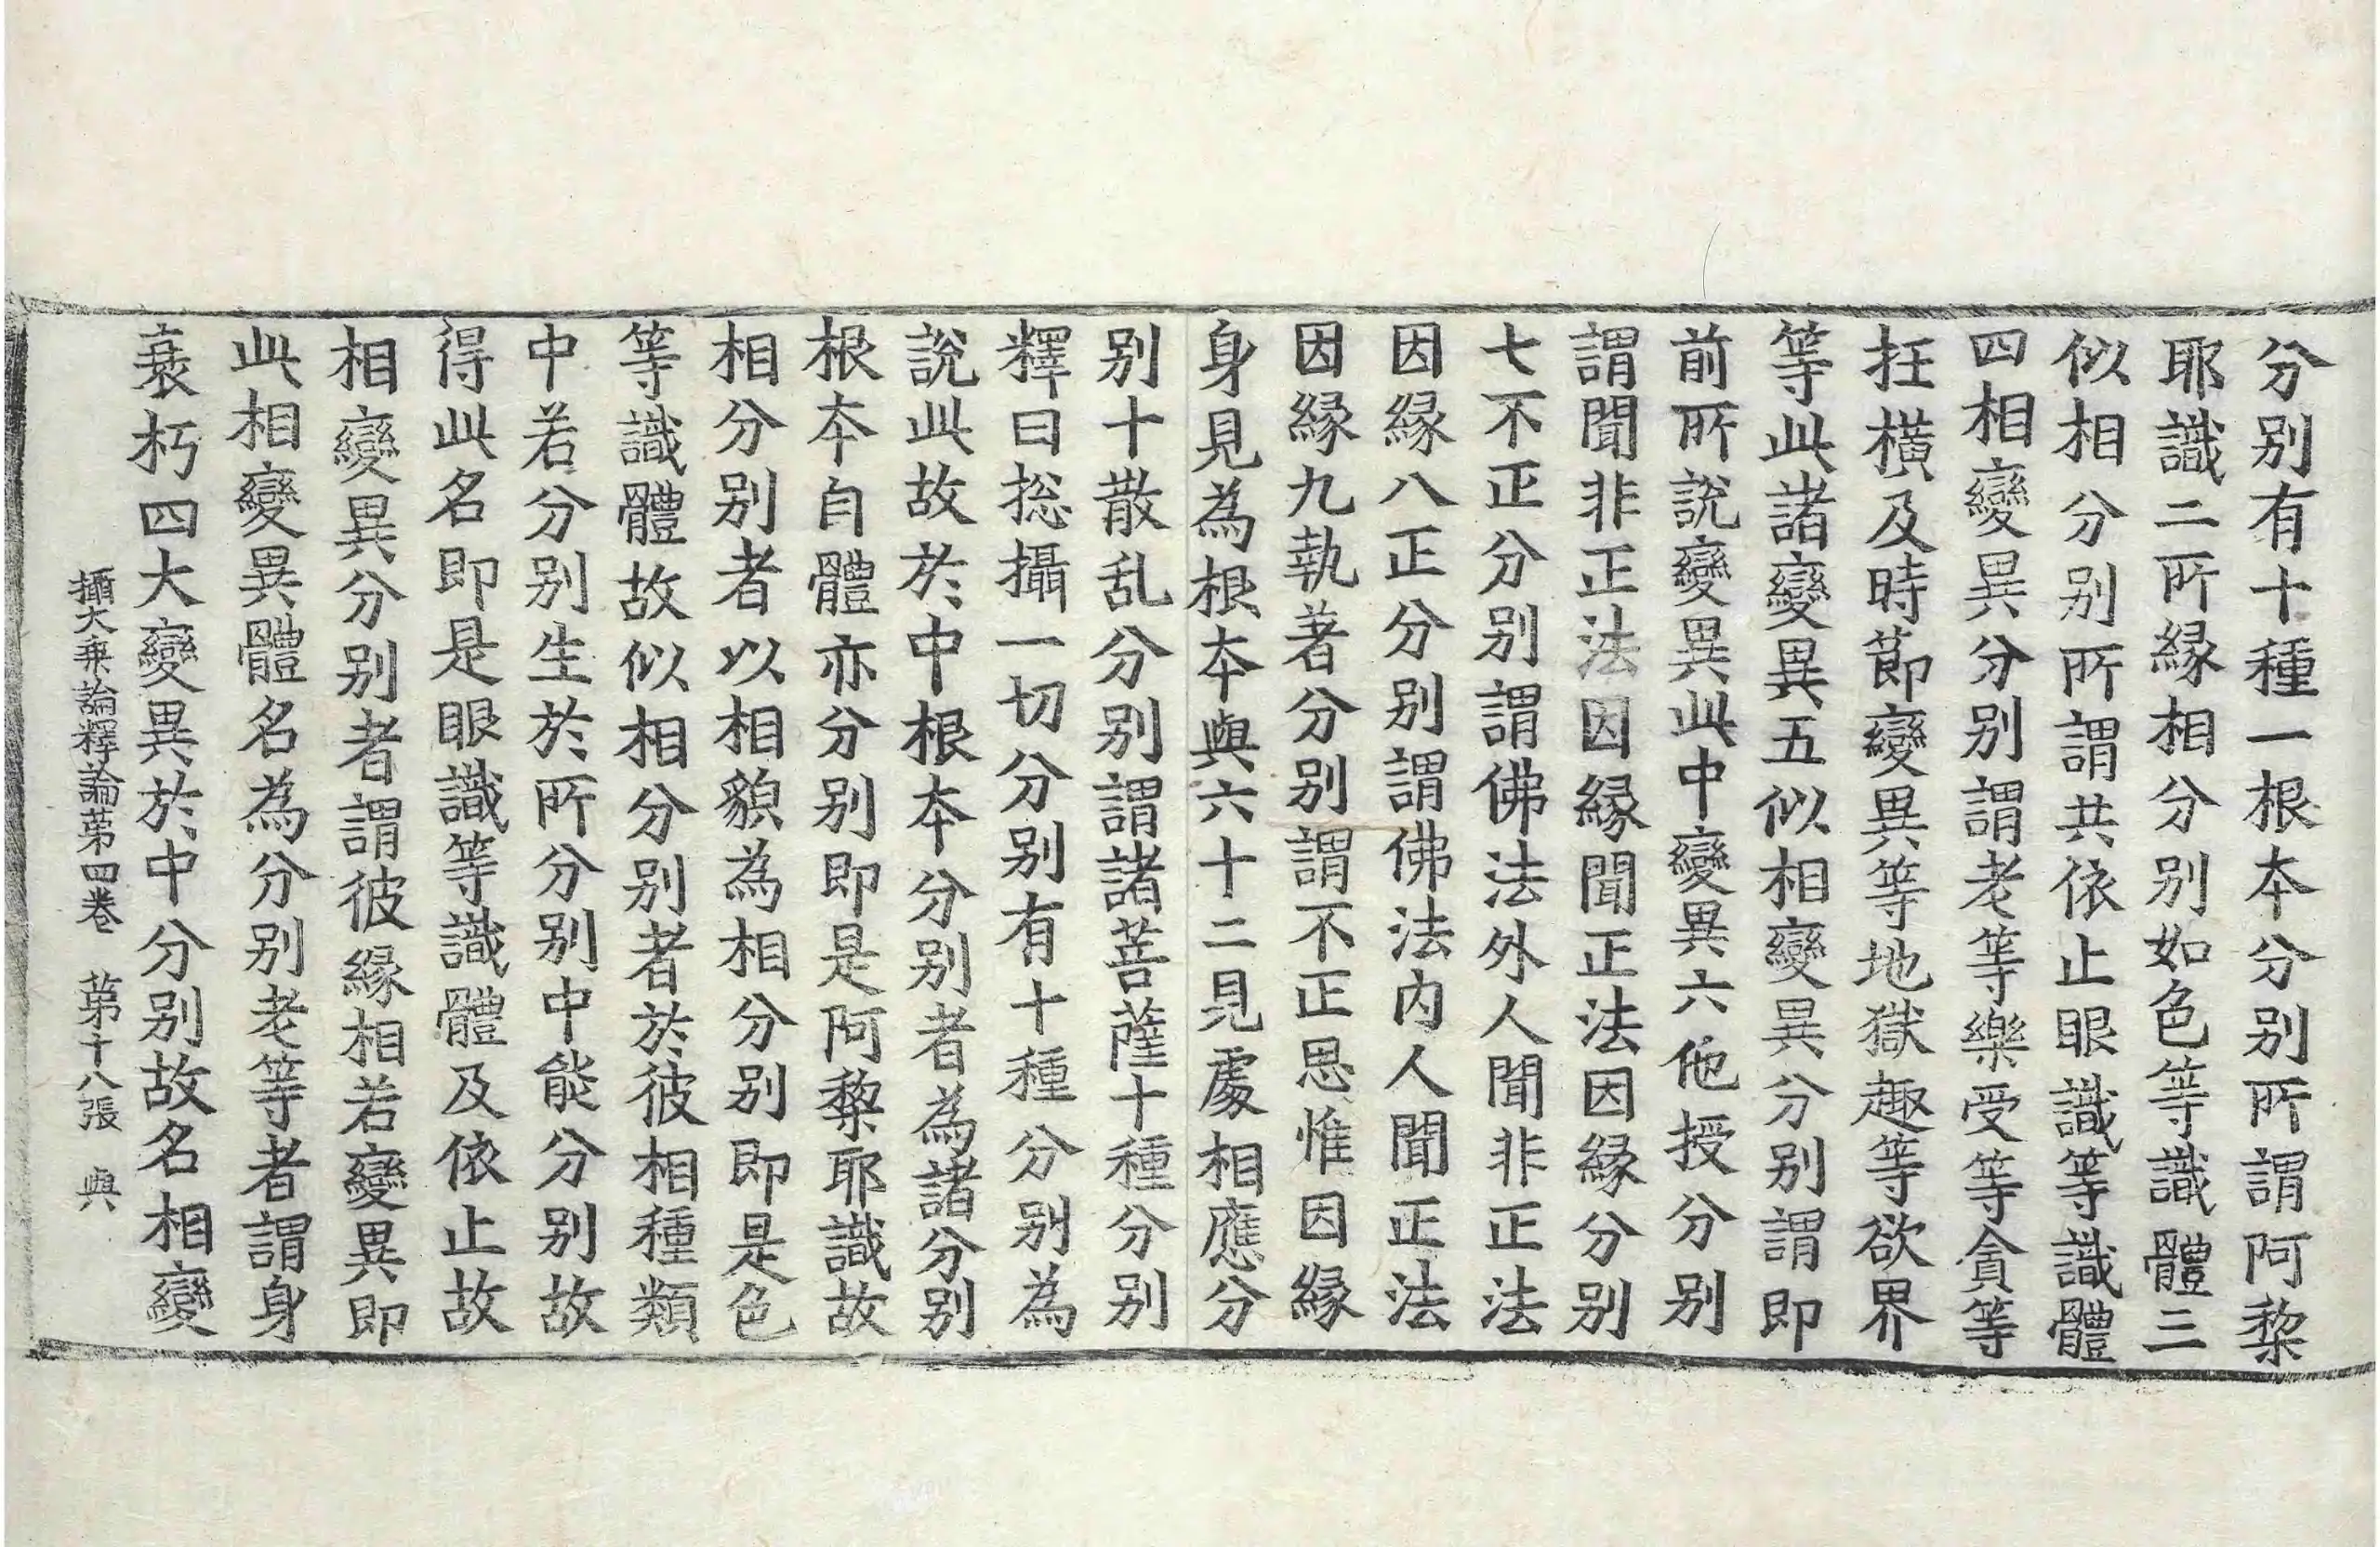 分别有十種一根本分别所謂阿黎
耶識二所縁相分别如色等識體三
似相分别所謂共依止眼識等識體
四相變異分别謂老等樂受等貪等
抂横及時節變異等地獄趣等欲界
等此諸變異五似相變異分别謂即
前所說變異此中變異六他授分别
謂聞非正法因縁聞正法因縁分别
七不正分别謂佛法外人聞非正法
因縁八正分别謂佛法内人聞正法
因縁九執著分别謂不正思惟因縁
身見為根本與六十二見處相應分
别十散乱分别謂諸菩薩十種分别
釋曰捴攝一切分别有十種分别為
說此故於中根本分别者為諸分别
根本自體亦分别即是阿黎耶識故
相分别者以相貌為相分别即是色
等識體故似相分别者於彼相種類
中若分别生於所分别中能分别故
得此名即是眼識等識體及依止故
相變異分别者謂彼縁相若變異即
此相變異體名為分别老等者謂身
衰朽四大變異於中分别故名相變
攝大乘論釋論第四卷　第十八張　與